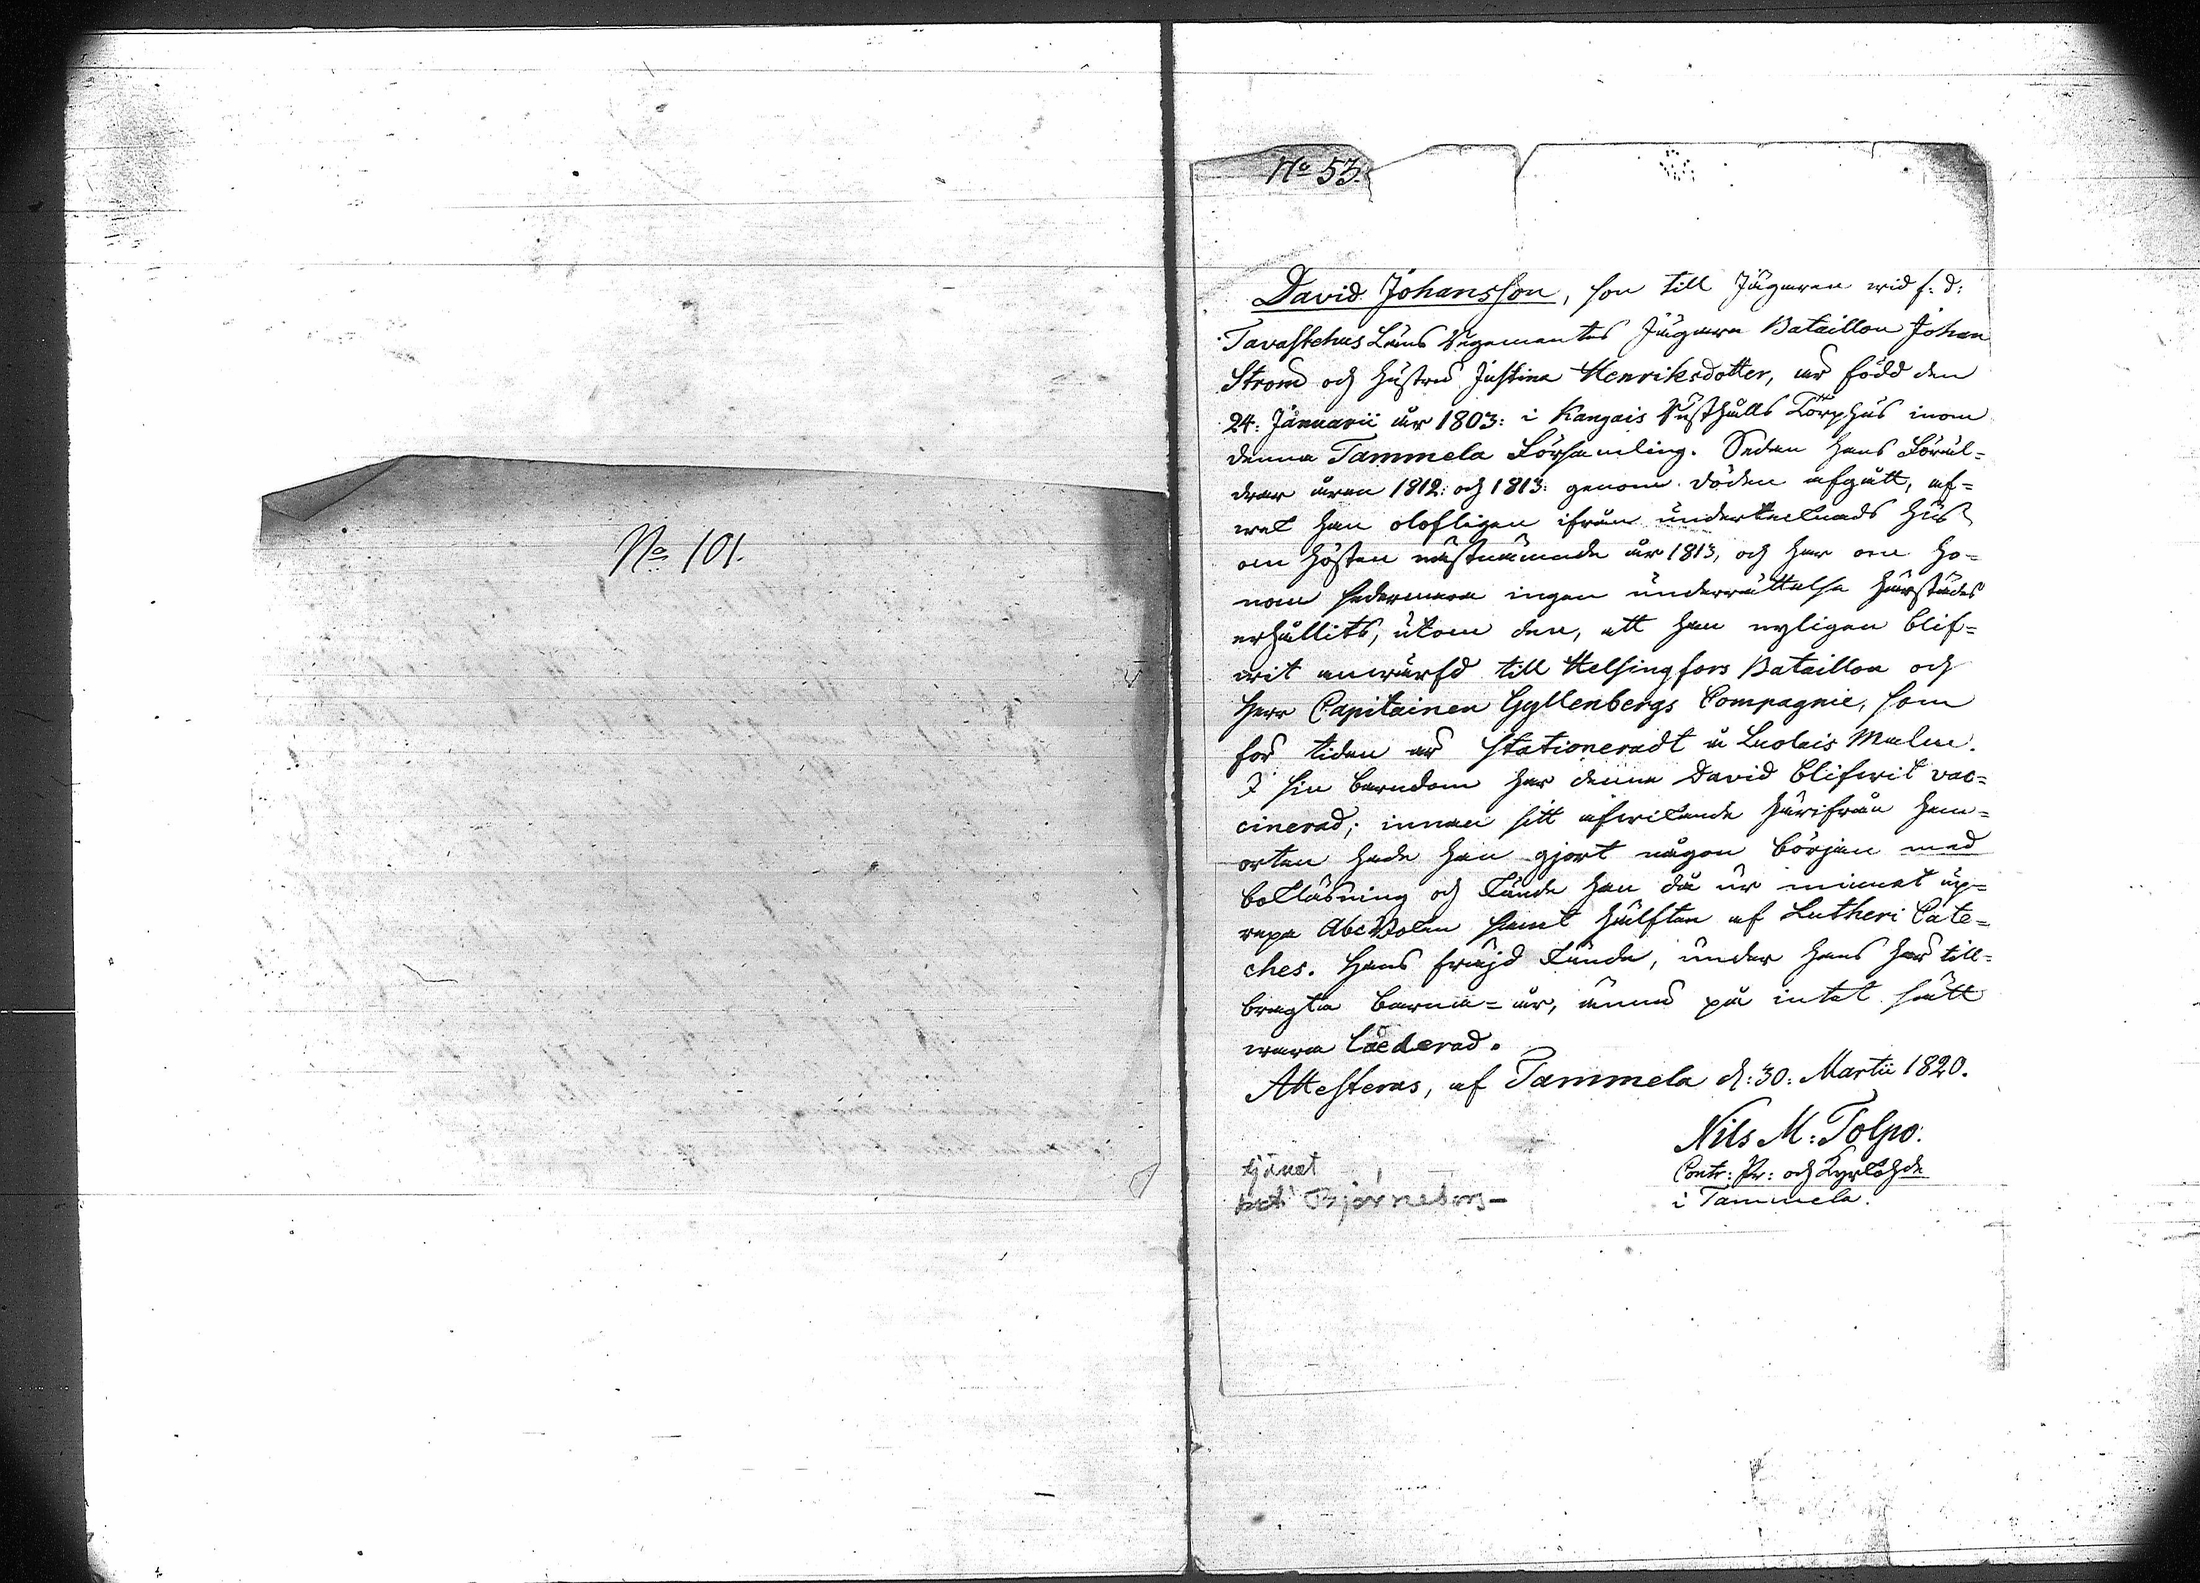 No 101.
No 53.
David Johansson, son till Jägaren wid f. d:
Tavastehus Läns Regementes Jägare Bataillon Johan
Strom och hustru Justina Henriksdotter, är född den
24: Januarii år 1803: i Kangais Rusthålls Torphus inom
denna Tammela Församling. Sedan hans Föräl=
drar åren 1812: och 1813: genom döden afgått, af=
wek han olofligen ifrån undertecknads hus
om hösten nästnämnde år 1813, och har om ho=
nom sedermera ingen underrättelse härstädes
erhållits, utom den, att han nyligen blif=
wit anwärfd till Helsingfors Bataillon och
Herr Capitainen Gyllenbergs Compagnie, som
för tiden är stationeradt å Malm.
I sin barndom har denne David blifwit vac=
cinerad; innan sitt afwikande härifrån hem=
orten hade han gjort någon början med
bokläsning och kunde han då ur minnet up=
repa Abc Boken samt hälften af Lutheri Cate=
ches. Hans fräjd kunde, under hans här till=
bragta barna=år, ännu på intet sätt
wara laederad.
Attesteras, af Tammela d: 30: Martii 1820.
Nils M: Tolpo.
Contr: Pr: och Kyrkohde
i Tammela.
tjänat
Björneborg